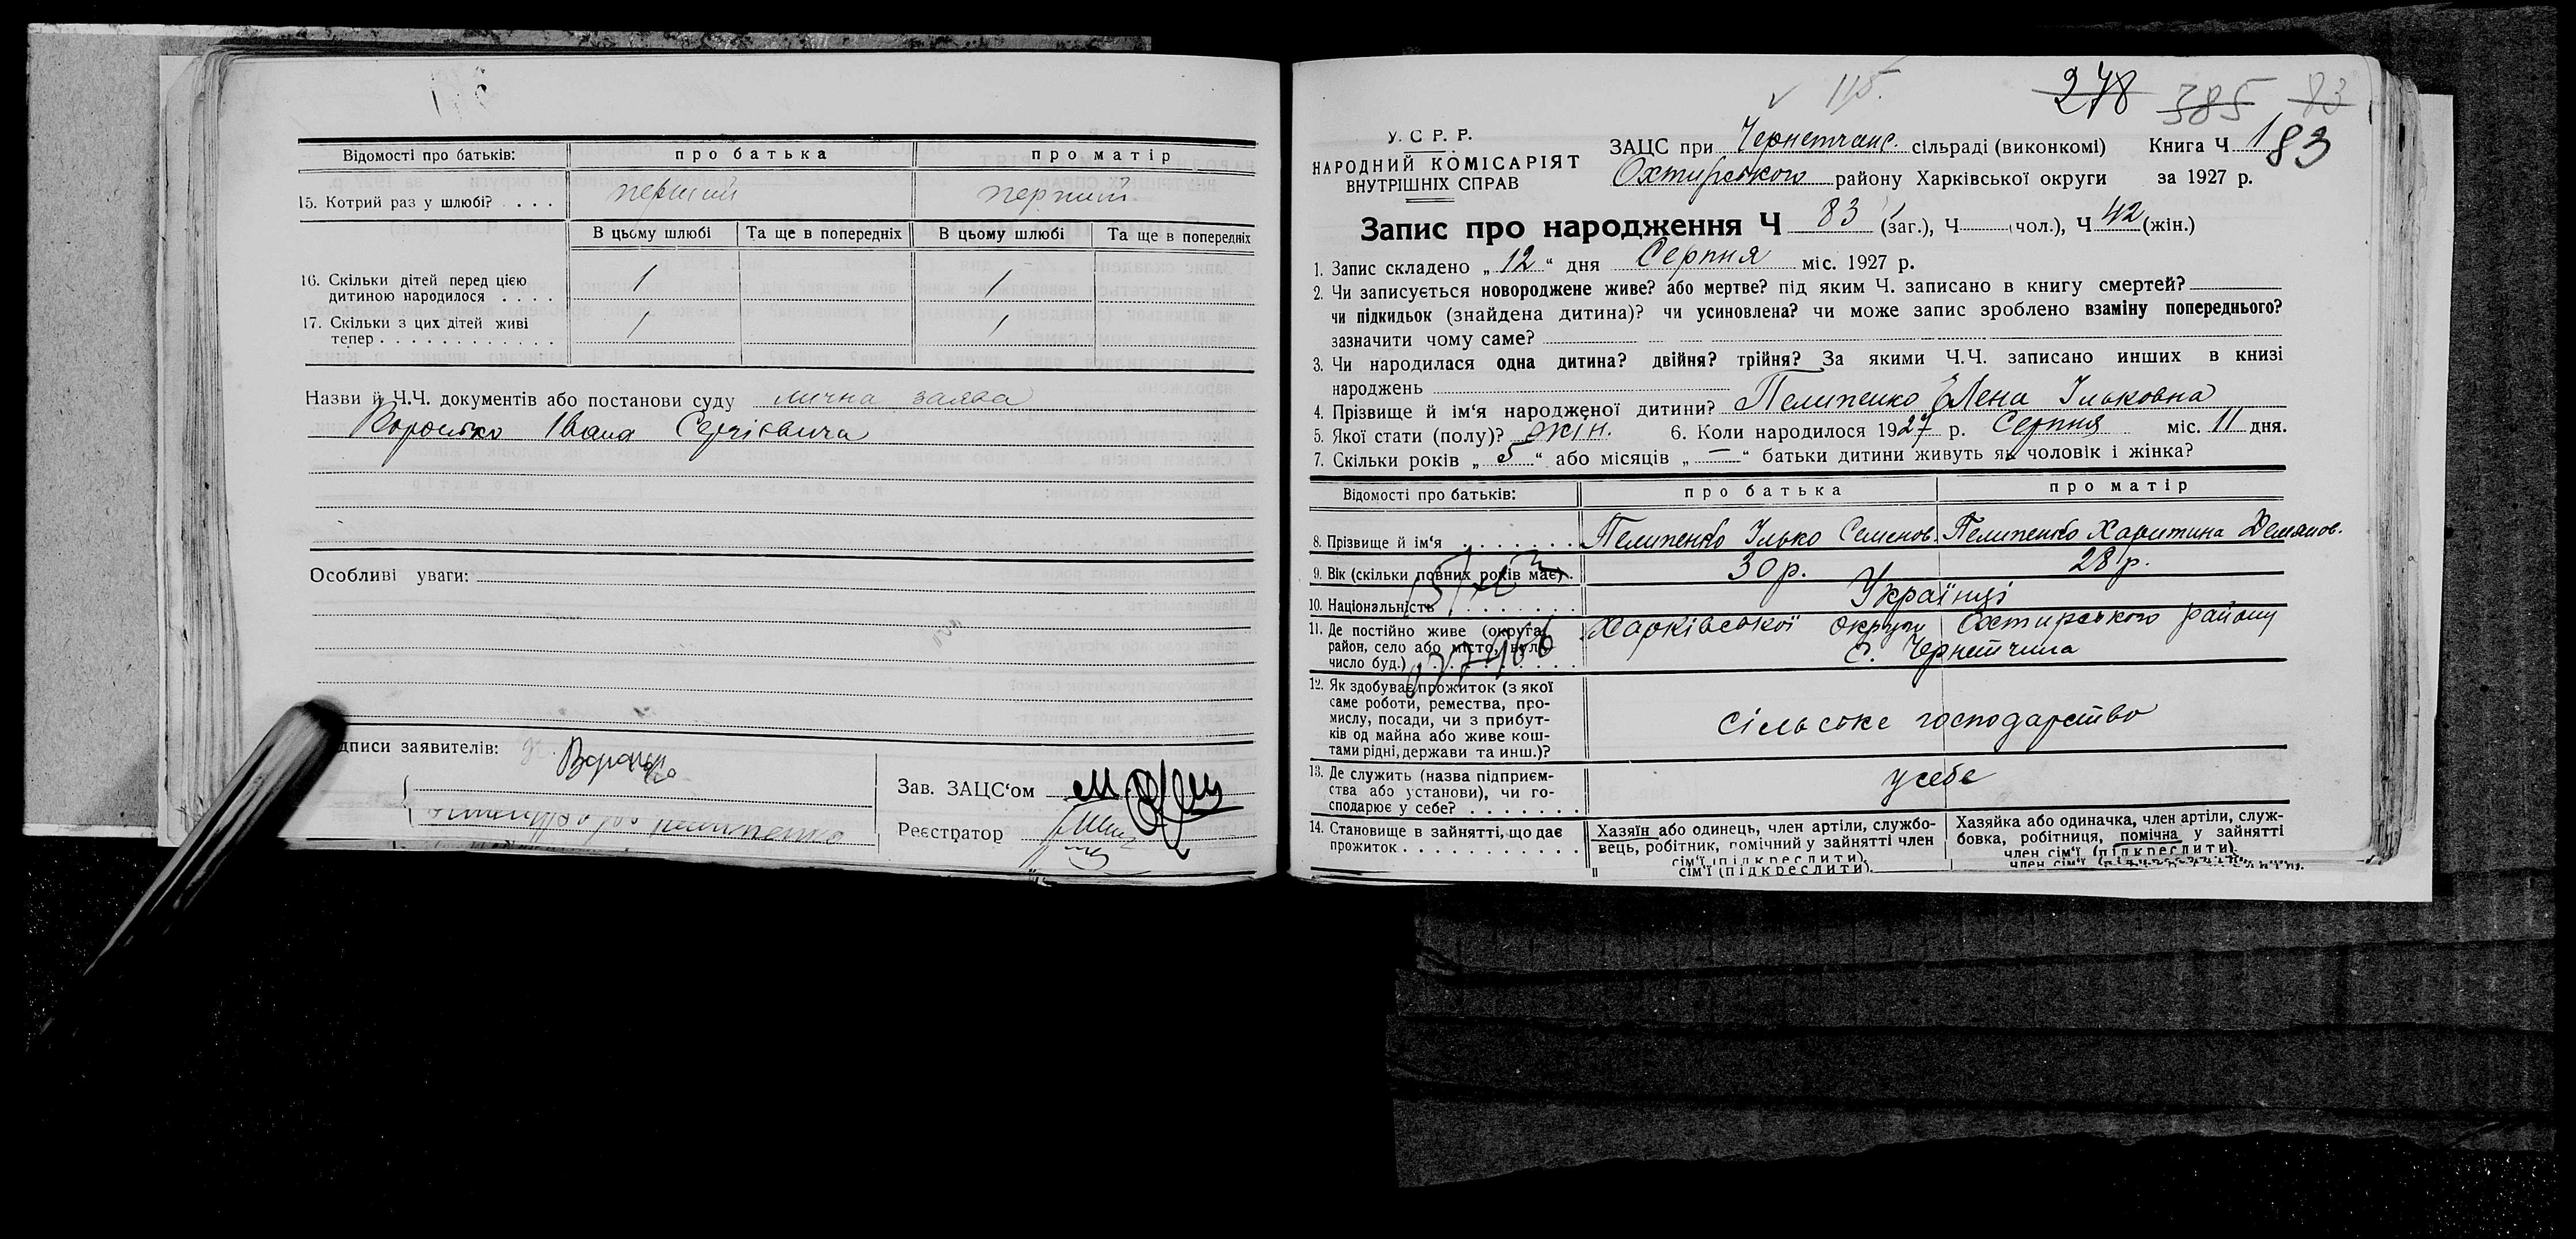 Відомості про батьків: про батька про матір
15. Котрий раз у шлюбі? . . . перший перший
В цьому шлюбі Та ще в попередніх В цьому шлюбі Та ще в попередніх
16. Скільки дітей перед цією
дитиною народилося . . . . 1 1
17. Скільки з цих дітей живі
тепер . . . . . . . . . . . . 1 1
Назви й Ч.Ч. документів або постанови суду лична заява
Івана Сергієвича
Особливі уваги:
дписи заявителів:
Зав. ЗАЦС'ом
Реєстратор
115.
278 385 83
У. С Р. Р.
НАРОДНИЙ КОМІСАРІЯТ
ВНУТРІШНІХ СПРАВ
ЗАЦС при Чернетчанс. сільраді (виконкомі) Книга Ч 183
Охтирського району Харківської округи за 1927 р.
Запис про народження Ч 83 (заг.), Ч (чол.), Ч 42 (жін.)
1. Запис складено „ 12 “ дня Серпня міс. 1927 р.
2. Чи записується новороджене живе? або мертве? під яким Ч. записано в книгу смертей?
чи підкидьок (знайдена дитина)? чи усиновлена? чи може запис зроблено взаміну попереднього?
зазначити чому саме?
3. Чи народилася одна дитина? двійня? трійня? За якими Ч.Ч. записано инших в книзі
народжень
4. Прізвище й ім'я народженої дитини? Пелипенко Елена Ільковна
5. Якої стати (полу)? жін. 6. Коли народилося 1927 р. Серпня міс. 11 дня.
7. Скільки років „ 5 “ або місяців „ — “ батьки дитини живуть як чоловік і жінка?
Відомості про батьків: про батька про матір
8. Прізвище й ім'я . . . . . . . Пелипенко Ілько Семенов. Пелипенко Харитина Демянов.
9. Вік (скільки повних років має) . 30 р. 28 р.
10. Національність . . . . . . . Українці
11. Де постійно живе (округа, Харківської округи Охтирського району
район, село або місто, вул. с. Чернетчина
число буд.) . . . . . . . . . .
12. Як здобуває прожиток (з якої
саме роботи, ремества, про-
мислу, посади, чи з прибут- Сільське господарство
ків од майна або живе кош-
тами рідні, держави та инш.)?
13. Де служить (назва підприєм- у себе
ства або установи), чи го-
сподарює у себе? . . . . . . .
14. Становище в зайнятті, що дає Хазяїн або одинець, член артіли, службо- Хазяйка або одиначка, член артіли, служ-
прожиток . . . . . . . . . . . вець, робітник, помічний у зайнятті член бовка, робітниця, помічна у зайнятті
сім'ї (підкреслити). член сім'ї (підкреслити).
сім'ї (підкреслити). член сім'ї